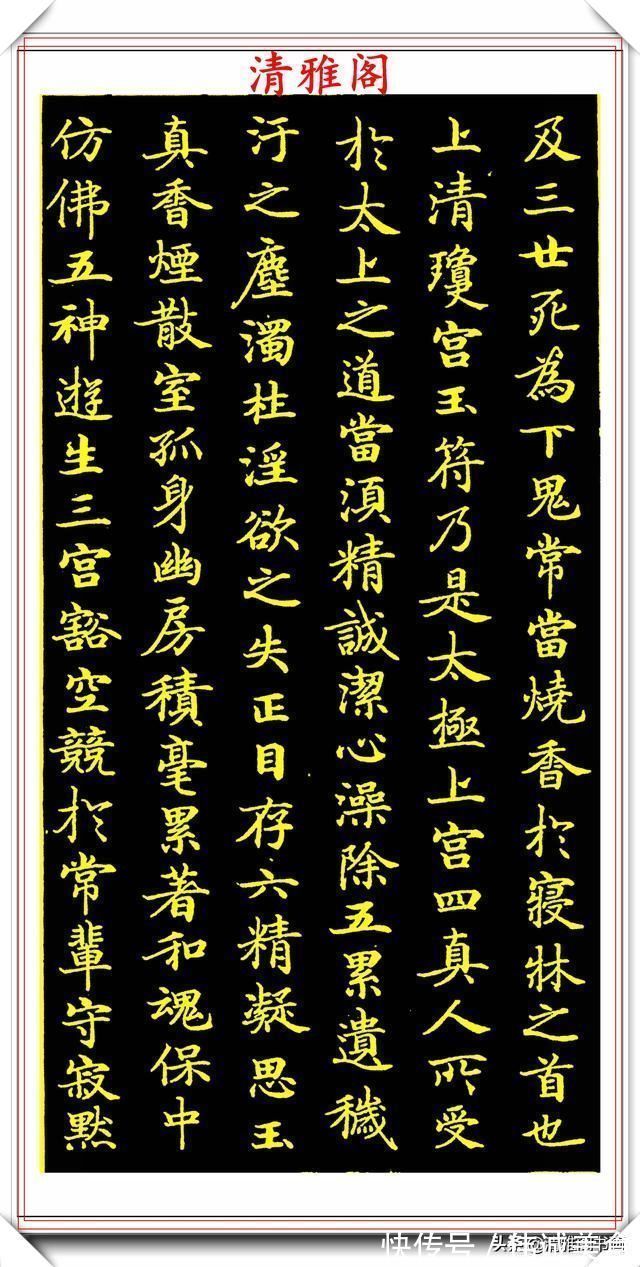 清雅阁
及三世死為下鬼常當燒香於寢牀之首也
上清瓊宮玉符乃是太極上宮四真人所受
於太上之道當須精誠潔心澡除五累遺穢
汙之塵濁柱淫欲之失正目存六精凝思玉
真香煙散室孤身幽房積毫累著和魂保中
仿佛五神遊生三宮豁空競於常輩守寂默
快传号